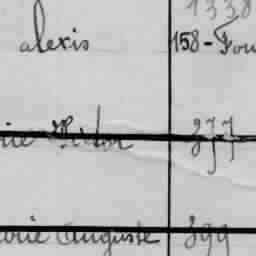 1338
alexis 158-Fou
rie Victor 377
orie Auguste 399